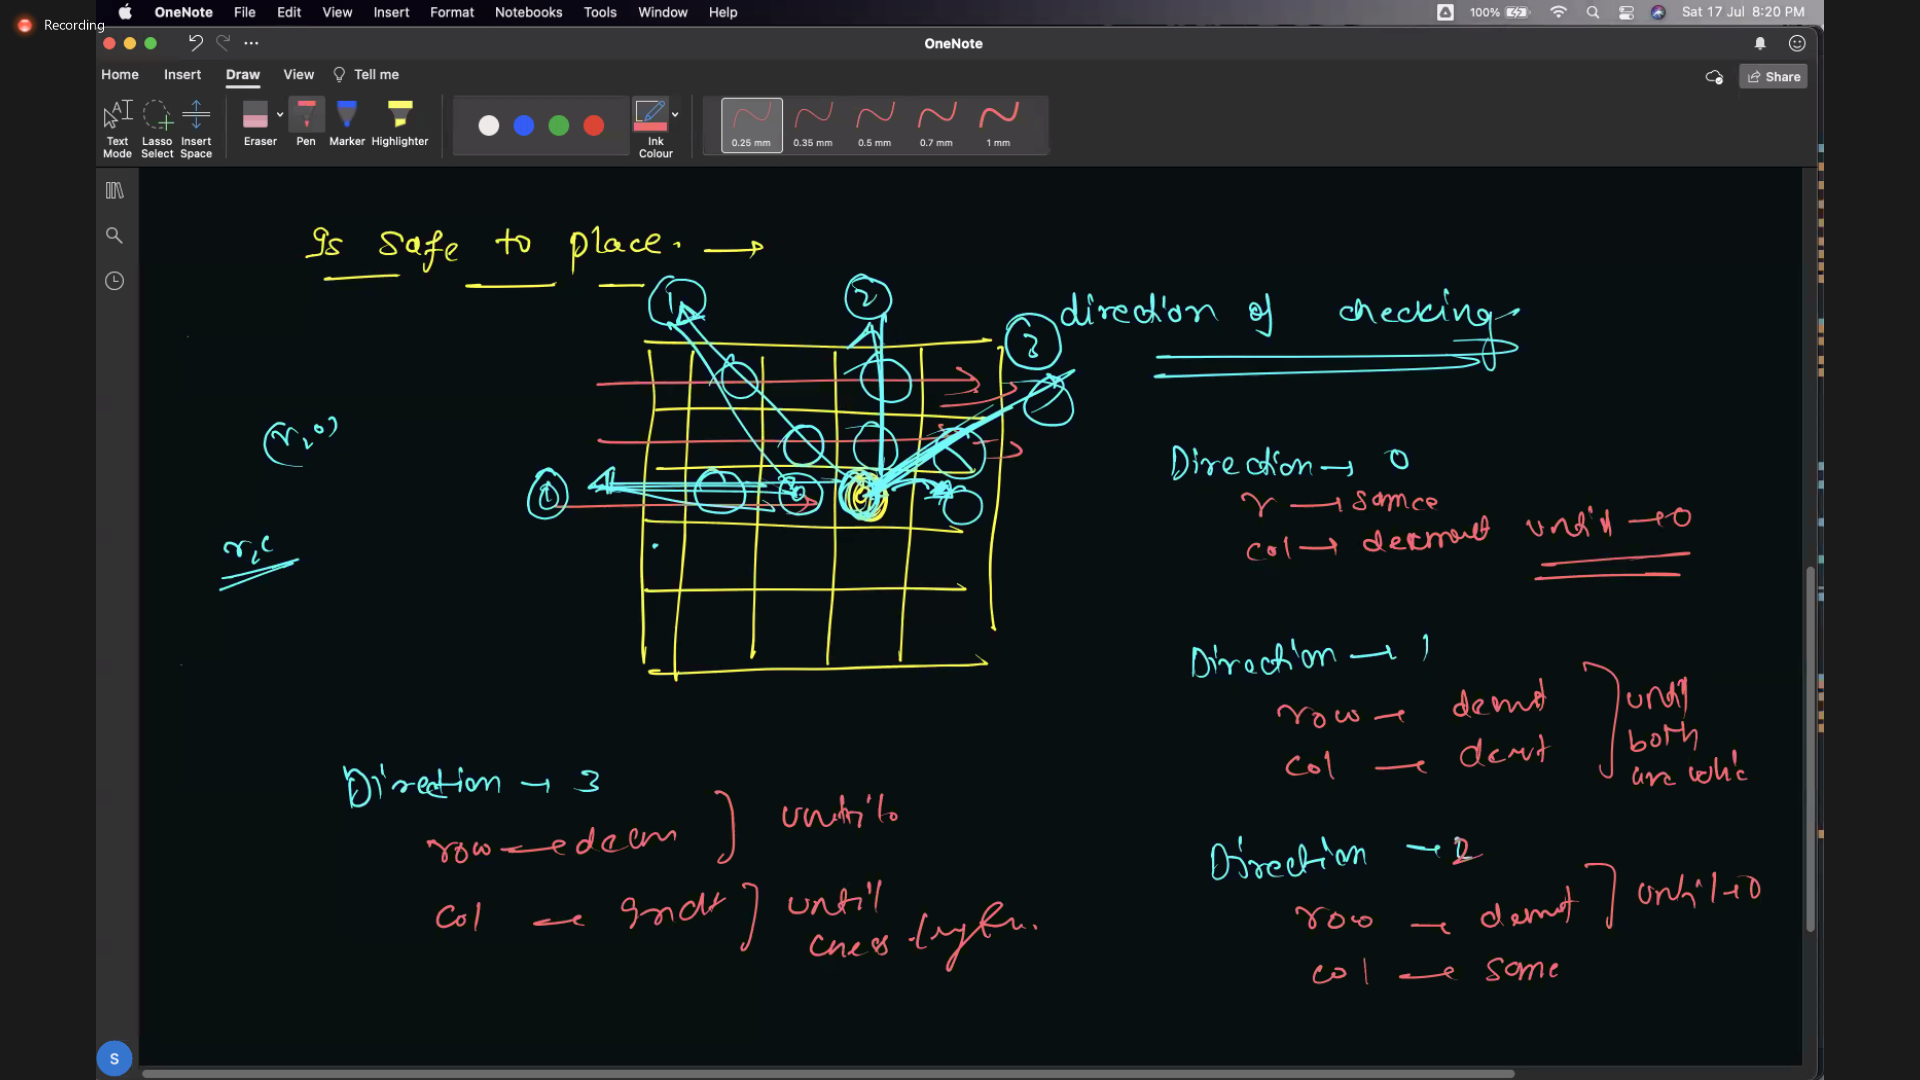 Recording
OneNote File Edit View Insert Format Notebooks Tools Window Help
100% Sat 17 Jul 8:20 PM
OneNote
Home Insert Draw View Tell me
Share
Text Mode
Lasso Select
Insert Space
Eraser
Pen
Marker
Highlighter
Ink Colour
0.25 mm
0.35 mm
0.5 mm
0.7 mm
1 mm
Is safe to place. →
1
2
3
direction of checking
r, c
Direction → 0
r → same
col → until → 0
Direction → 1
row →
col →
until
both
are
Direction → 2
row →
until → 0
col → same
Direction → 3
row →
until 0
col →
until
S